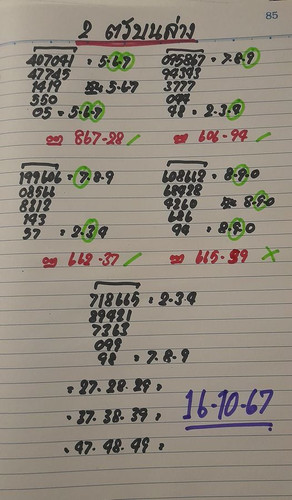 85
2 ตัวบนล่าง
407041 = 5-6-7
47745
1419 หรือ 5-6-7
550
05 = 5-6-7
ออก 867-28 ✓
095867 = 7-8-9
94343
3777
044
48 = 2-3-4
ออก 606-94 ✓
199606 = 7-8-9
08566
8312
143
57 = 2-3-4
ออก 662-37 ✓
608662 = 8-9-0
68428
4260 หรือ 8-9-0
686
44 = 8-9-0
ออก 665-59 ✗
718665 = 2-3-4
89421
7363
099
98 = 7-8-9
= 27-28-29 =
= 37-38-39 =
= 47-48-49 =
16-10-67